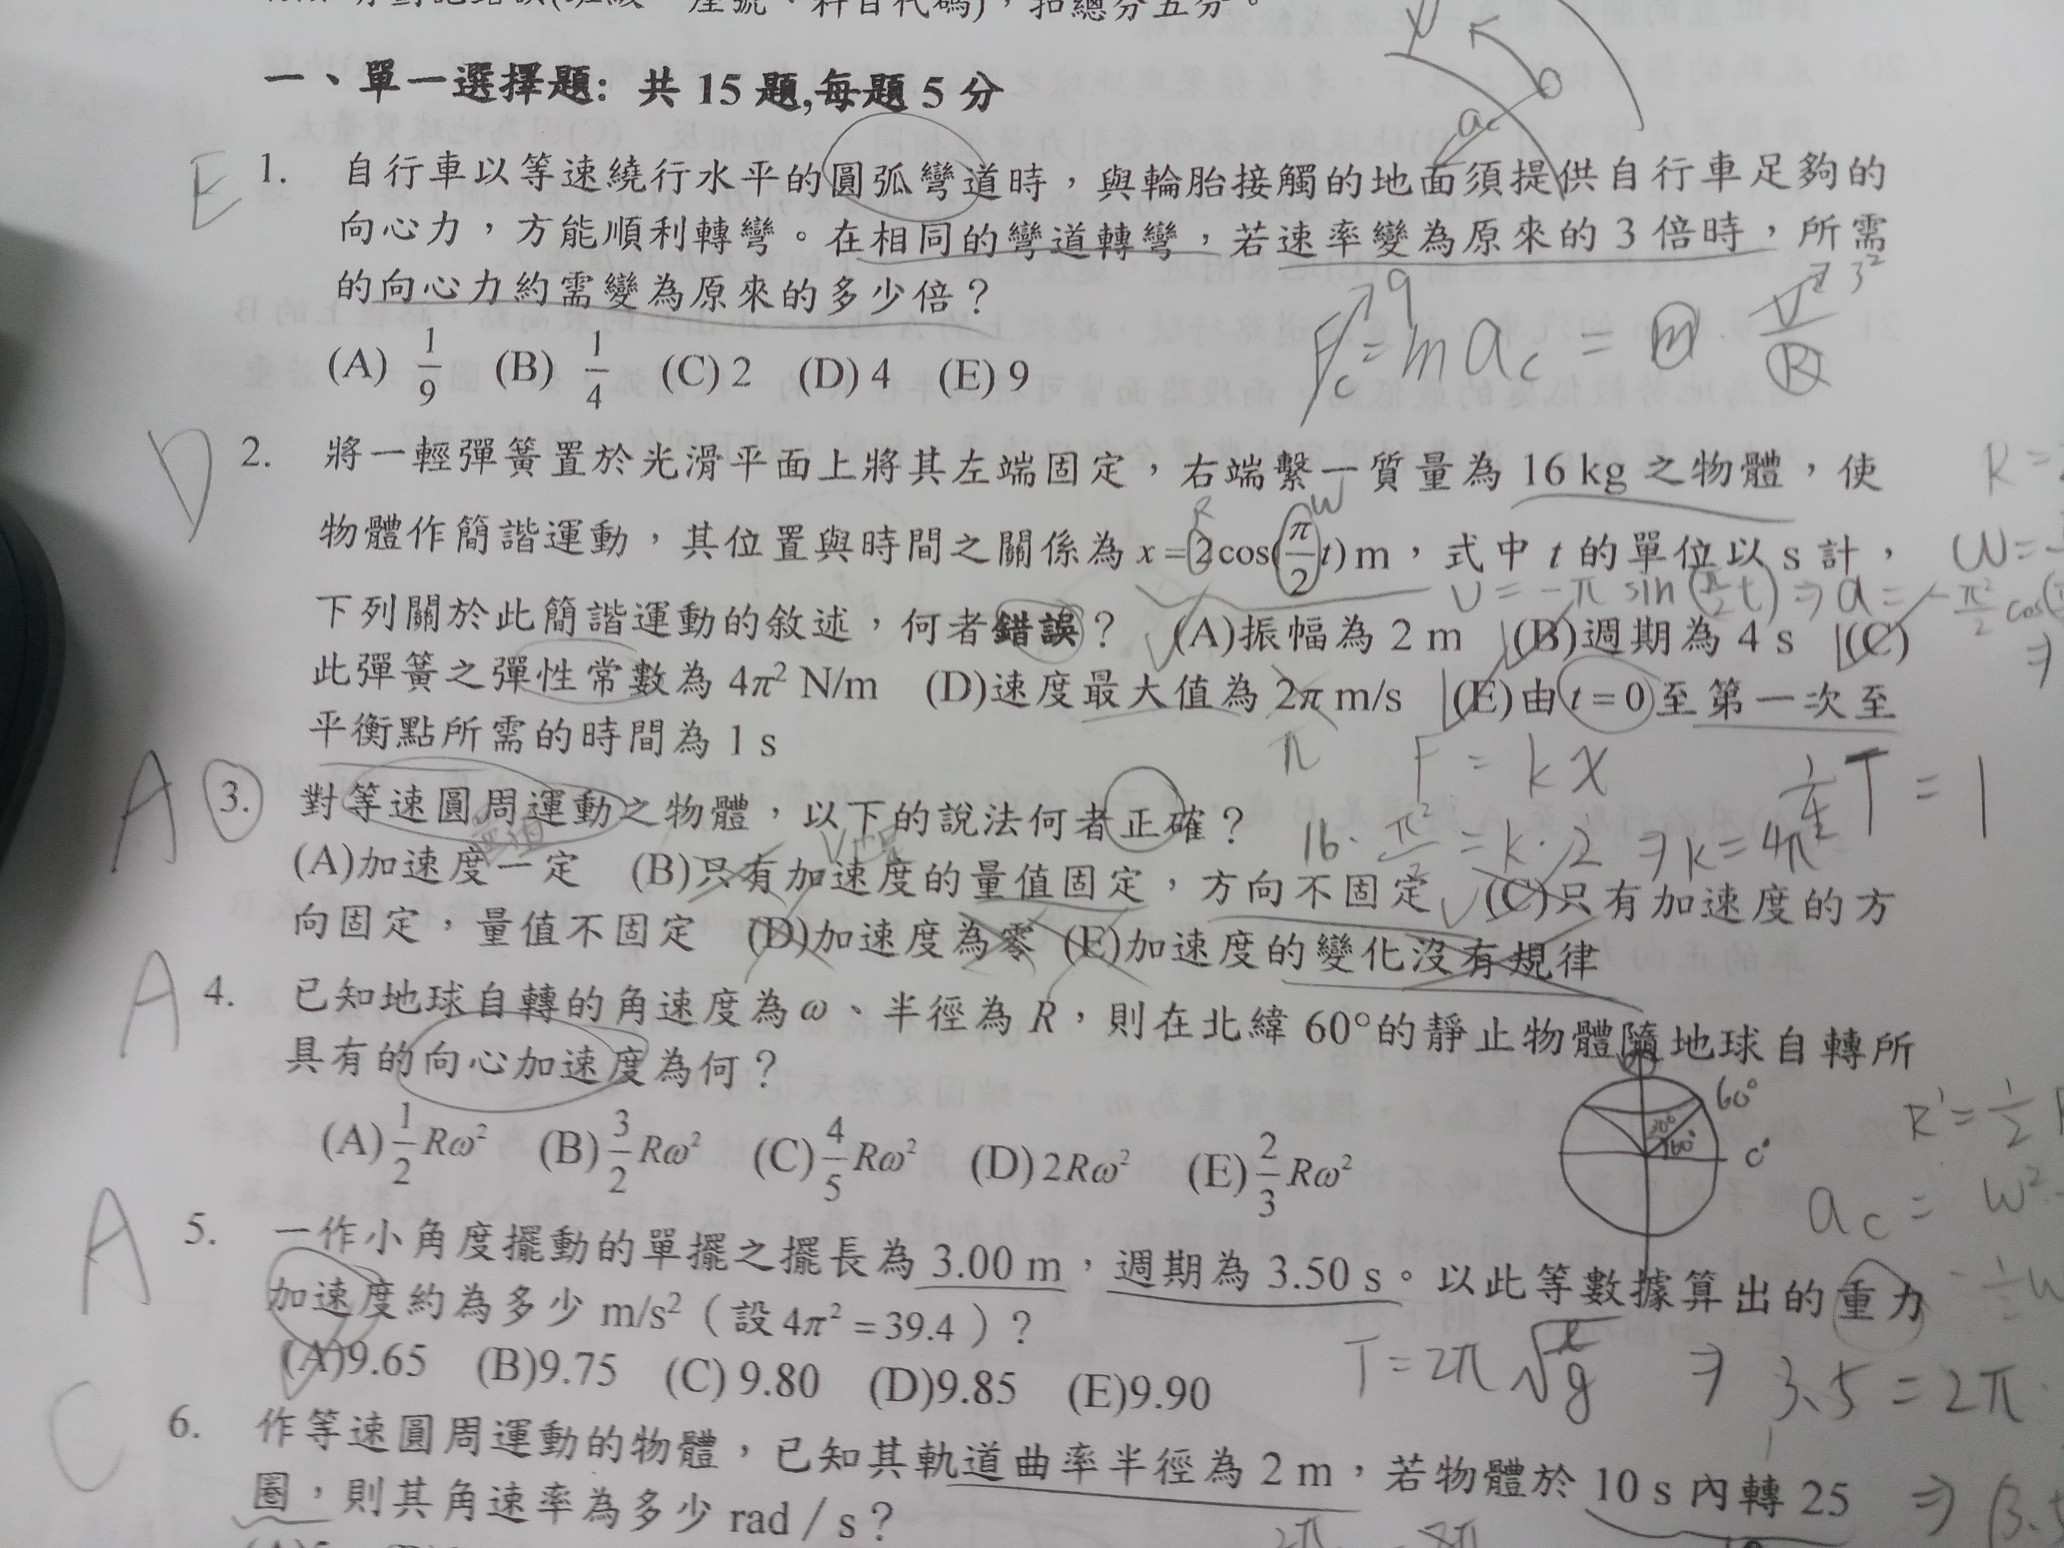 扣總分五分。
一、單一選擇題: 共 15 題,每題 5 分
ac
E 1. 自行車以等速繞行水平的圓弧彎道時，與輪胎接觸的地面須提供自行車足夠的
向心力，方能順利轉彎。在相同的彎道轉彎，若速率變為原來的 3 倍時，所需
的向心力約需變為原來的多少倍？
(A) 1/9 (B) 1/4 (C) 2 (D) 4 (E) 9
9
Fc = m ac = m V²/R 3²
D 2. 將一輕彈簧置於光滑平面上將其左端固定，右端繫一質量為 16 kg 之物體，使
R =
R W
物體作簡諧運動，其位置與時間之關係為 x = 2cos(π/2 t) m，式中 t 的單位以 s 計，
W =
υ = -π sin(π/2 t) ⇒ a = -π²/2 cos(
下列關於此簡諧運動的敘述，何者錯誤？ (A)振幅為 2 m (B)週期為 4 s (C)
⇒
此彈簧之彈性常數為 4π² N/m (D)速度最大值為 2π m/s (E)由 t = 0 至第一次至
平衡點所需的時間為 1 s
π F = k x T = 1
A 3. 對等速圓周運動之物體，以下的說法何者正確？
量值
16 · π²/2 = k · 2 ⇒ k = 4π²
(A)加速度一定 (B)只有加速度的量值固定，方向不固定 (C)只有加速度的方
向固定，量值不固定 (D)加速度為零 (E)加速度的變化沒有規律
A 4. 已知地球自轉的角速度為 ω、半徑為 R，則在北緯 60°的靜止物體隨地球自轉所
具有的向心加速度為何？
60°
60°
0°
R' = 1/2
(A) 1/2 Rω² (B) 3/2 Rω² (C) 4/5 Rω² (D) 2Rω² (E) 2/3 Rω²
ac = W²
A 5. 一作小角度擺動的單擺之擺長為 3.00 m，週期為 3.50 s。以此等數據算出的重力
加速度約為多少 m/s²（設 4π² = 39.4）？
T = 2π √(ℓ/g) ⇒ 3.5 = 2π
(A)9.65 (B)9.75 (C) 9.80 (D)9.85 (E)9.90
C 6. 作等速圓周運動的物體，已知其軌道曲率半徑為 2 m，若物體於 10 s 內轉 25
圈，則其角速率為多少 rad / s？